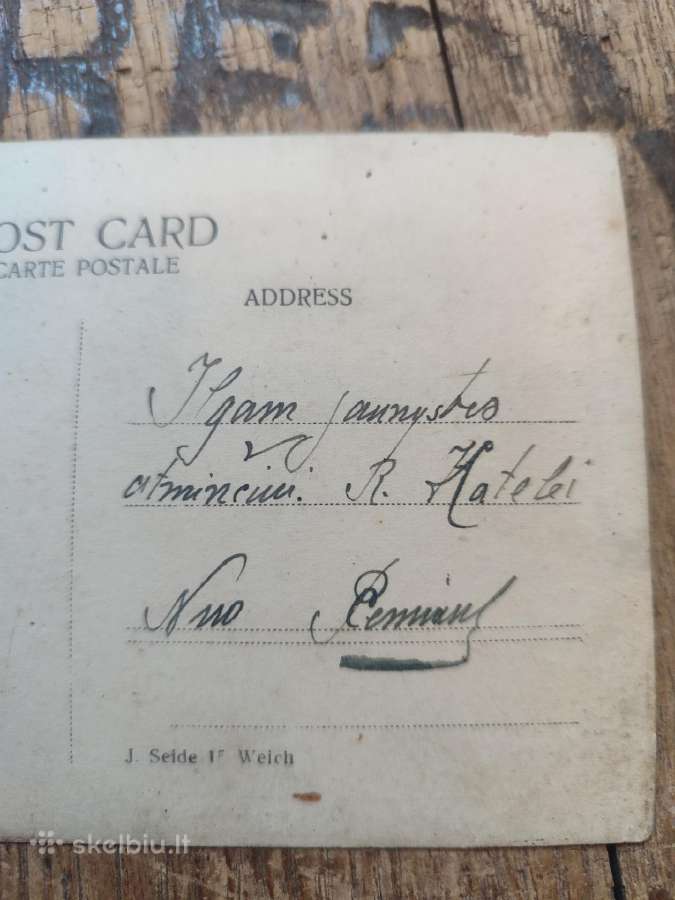 OST CARD
CARTE POSTALE
ADDRESS
Ilgam jaunystės
atminčiui. R. Katelei
Nuo
J. Seide 15 Weich
skelbiu.lt